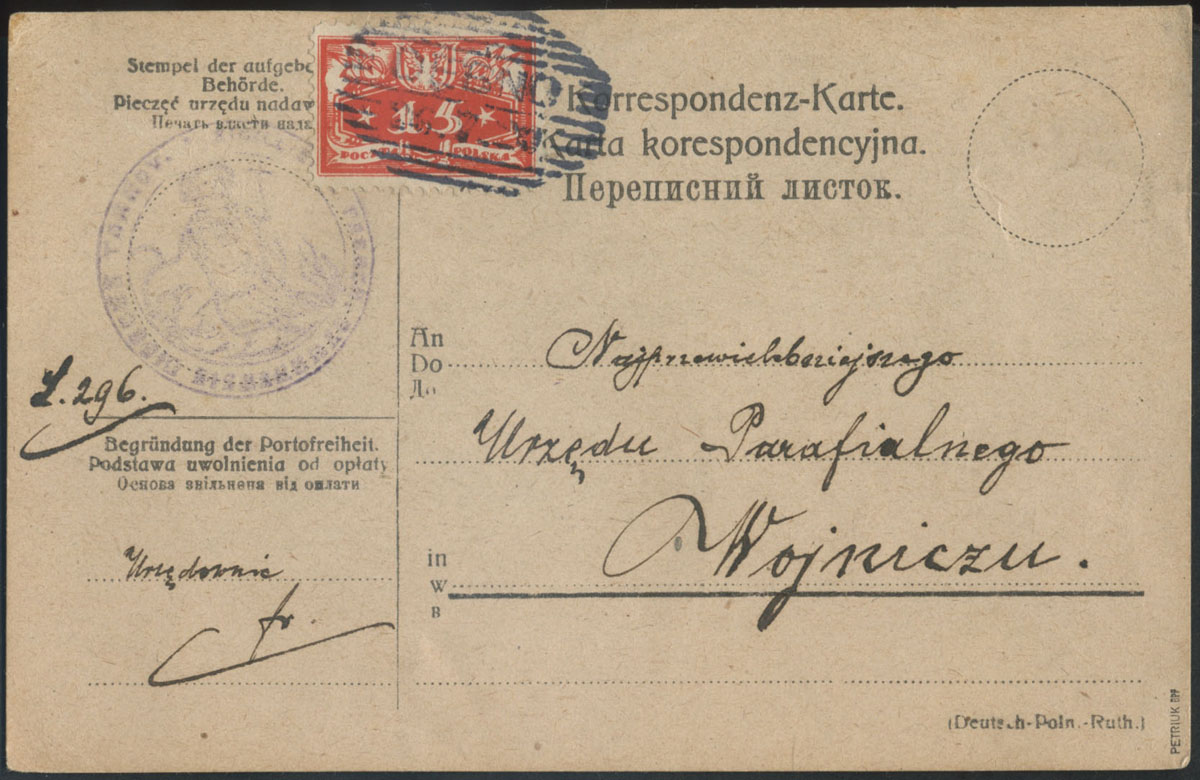 Stempel der aufgebe
Behörde.
Pieczęć urzędu nadaw
Печать власти нада
15
POCZTA POLSKA
Korrespondenz-Karte.
Karta korespondencyjna.
Переписний листок.
L. 296.
Begründung der Portofreiheit.
Podstawa uwolnienia od opłaty
Основа звільненя від оплати
Urzędownie
fr.
An
Do
До
Najprzewielebniejszego
Urzędu Parafialnego
in
w
в
Wojniczu.
(Deutsch-Poln.-Ruth.)
PETRIUK BPP